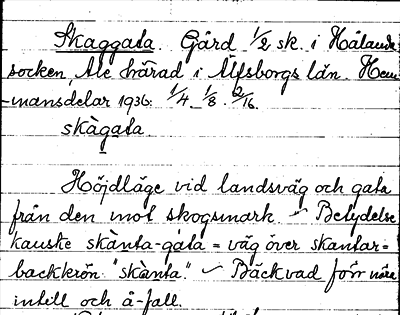 Skaggata. Gård 1/2 sk. i Hålanda
socken, Ale härad i Älfsborgs län. Hem-
mansdelar 1936: 1/4. 1/8. 2/16.
skàgata
Höjdläge vid landsväg och gata
från den mot skogsmark. — Betydelse
kanske skànta-gàta = väg över skantar=
backkrön "skànta". — Bäckvad förr nära
intill och å-fall.